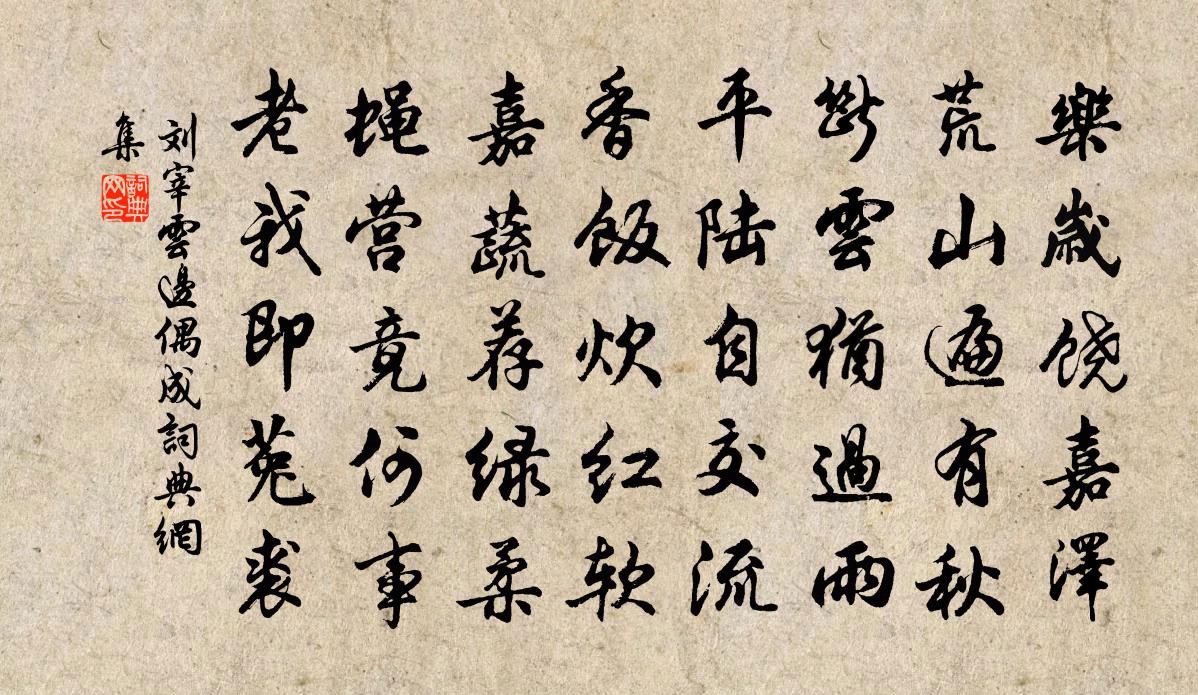 樂歲饶嘉澤
荒山遍有秋
斷雲猶過雨
平陆自交流
香飯炊红软
嘉蔬荐绿柔
蝇营竟何事
老我即菟裘
刘宰雲邊偶成詞典網
集
詞典
网印